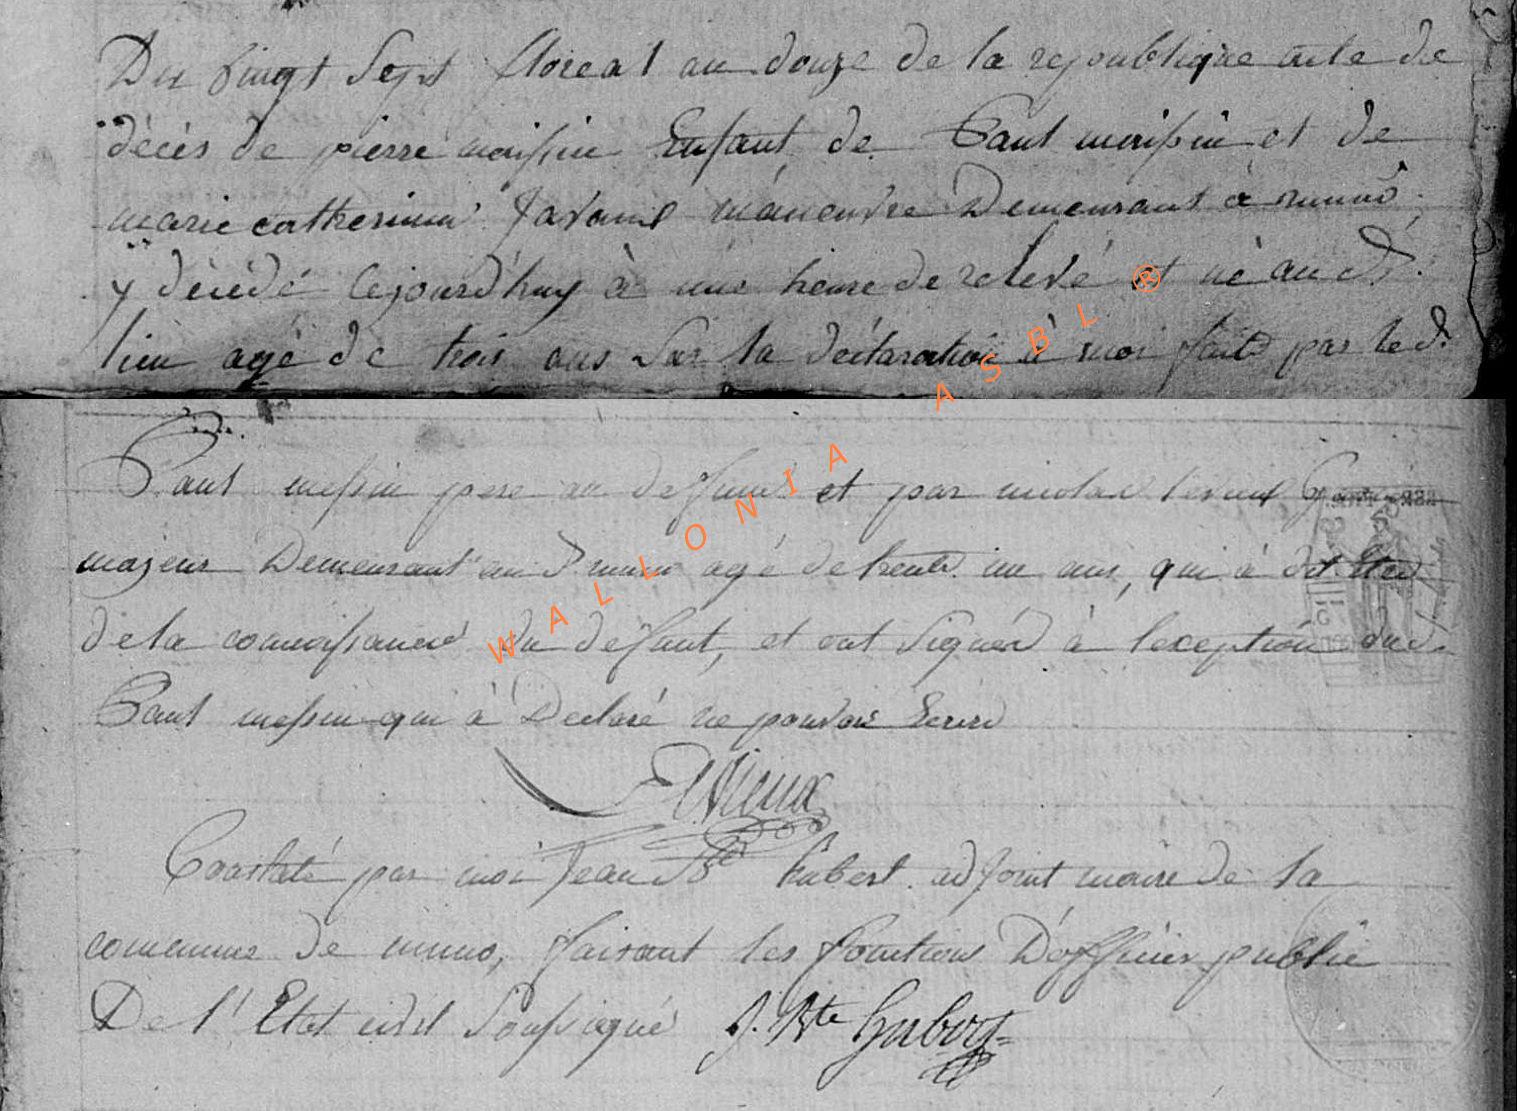 Du vingt Sept floreal an douze de la republique acte de
décés de pierre moissin Enfant de Paul moissin et de
marie catherinne Javaux manœuvre Demeurant à muno,
y décédé cejourd'huy à une heure de relevé et né au d.
lieu agé de trois ans Sur la déclaration à moi faite par le d.
Paul messin pere au defunt et par nicolas levieux
majeur Demeurant au d. muno agé de trente un ans, qui à dit Etre
de la connoissance du défunt, et ont Signér à lexception dud.
Paul messin qui à Declaré ne pouvoir Ecrire
Constaté par moi Jean Bte hubert adjoint maire de la
commune de muno, faisant les fonctions D'officier public
De l'Etat civil Soussigné J. Bte Hubert
WALLONIA ASBL ®